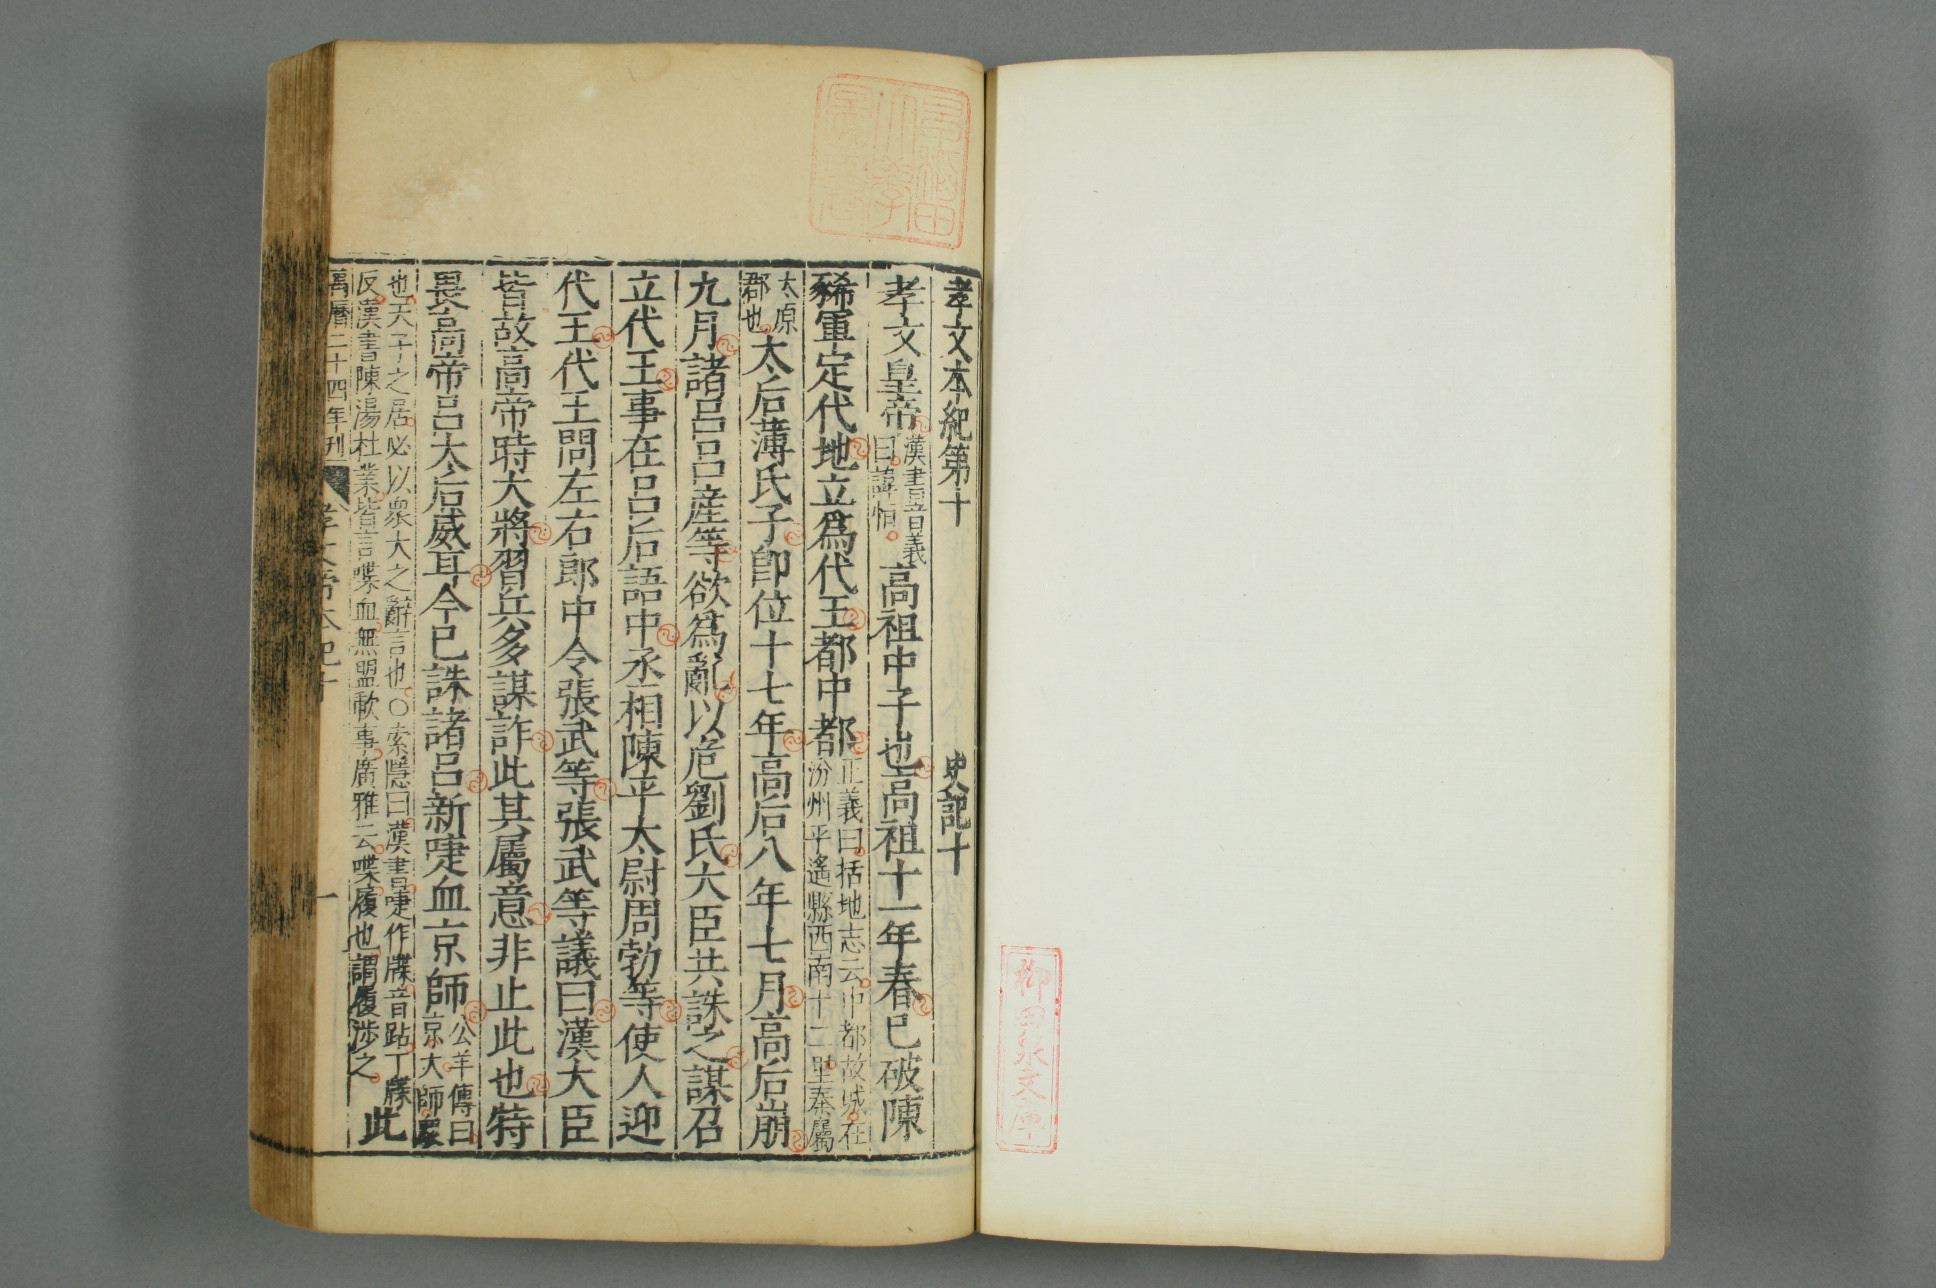 柳田泉文庫
早稻田大學圖書
孝文本紀第十　史記十
孝文皇帝漢書音義曰諱恒。高祖中子也高祖十一年春已破陳
豨軍定代地立爲代王都中都正義曰括地志云中都故城在汾州平遙縣西南十二里秦屬
太原郡也。太后薄氏子卽位十七年高后八年七月高后崩
九月諸呂呂產等欲爲亂以危劉氏大臣共誅之謀召
立代王事在呂后語中丞相陳平太尉周勃等使人迎
代王代王問左右郎中令張武等張武等議曰漢大臣
皆故高帝時大將習兵多謀詐此其屬意非止此也特
畏高帝呂太后威耳今已誅諸呂新啑血京師公羊傳曰京大師衆
也天子之居必以衆大之辭言也。○索隱曰漢書啑作喋音跕丁牒反漢書陳湯杜業皆言喋血無盟歃事廣雅云喋履也謂履涉之。此
萬曆二十四年刊　孝文帝本紀十　一